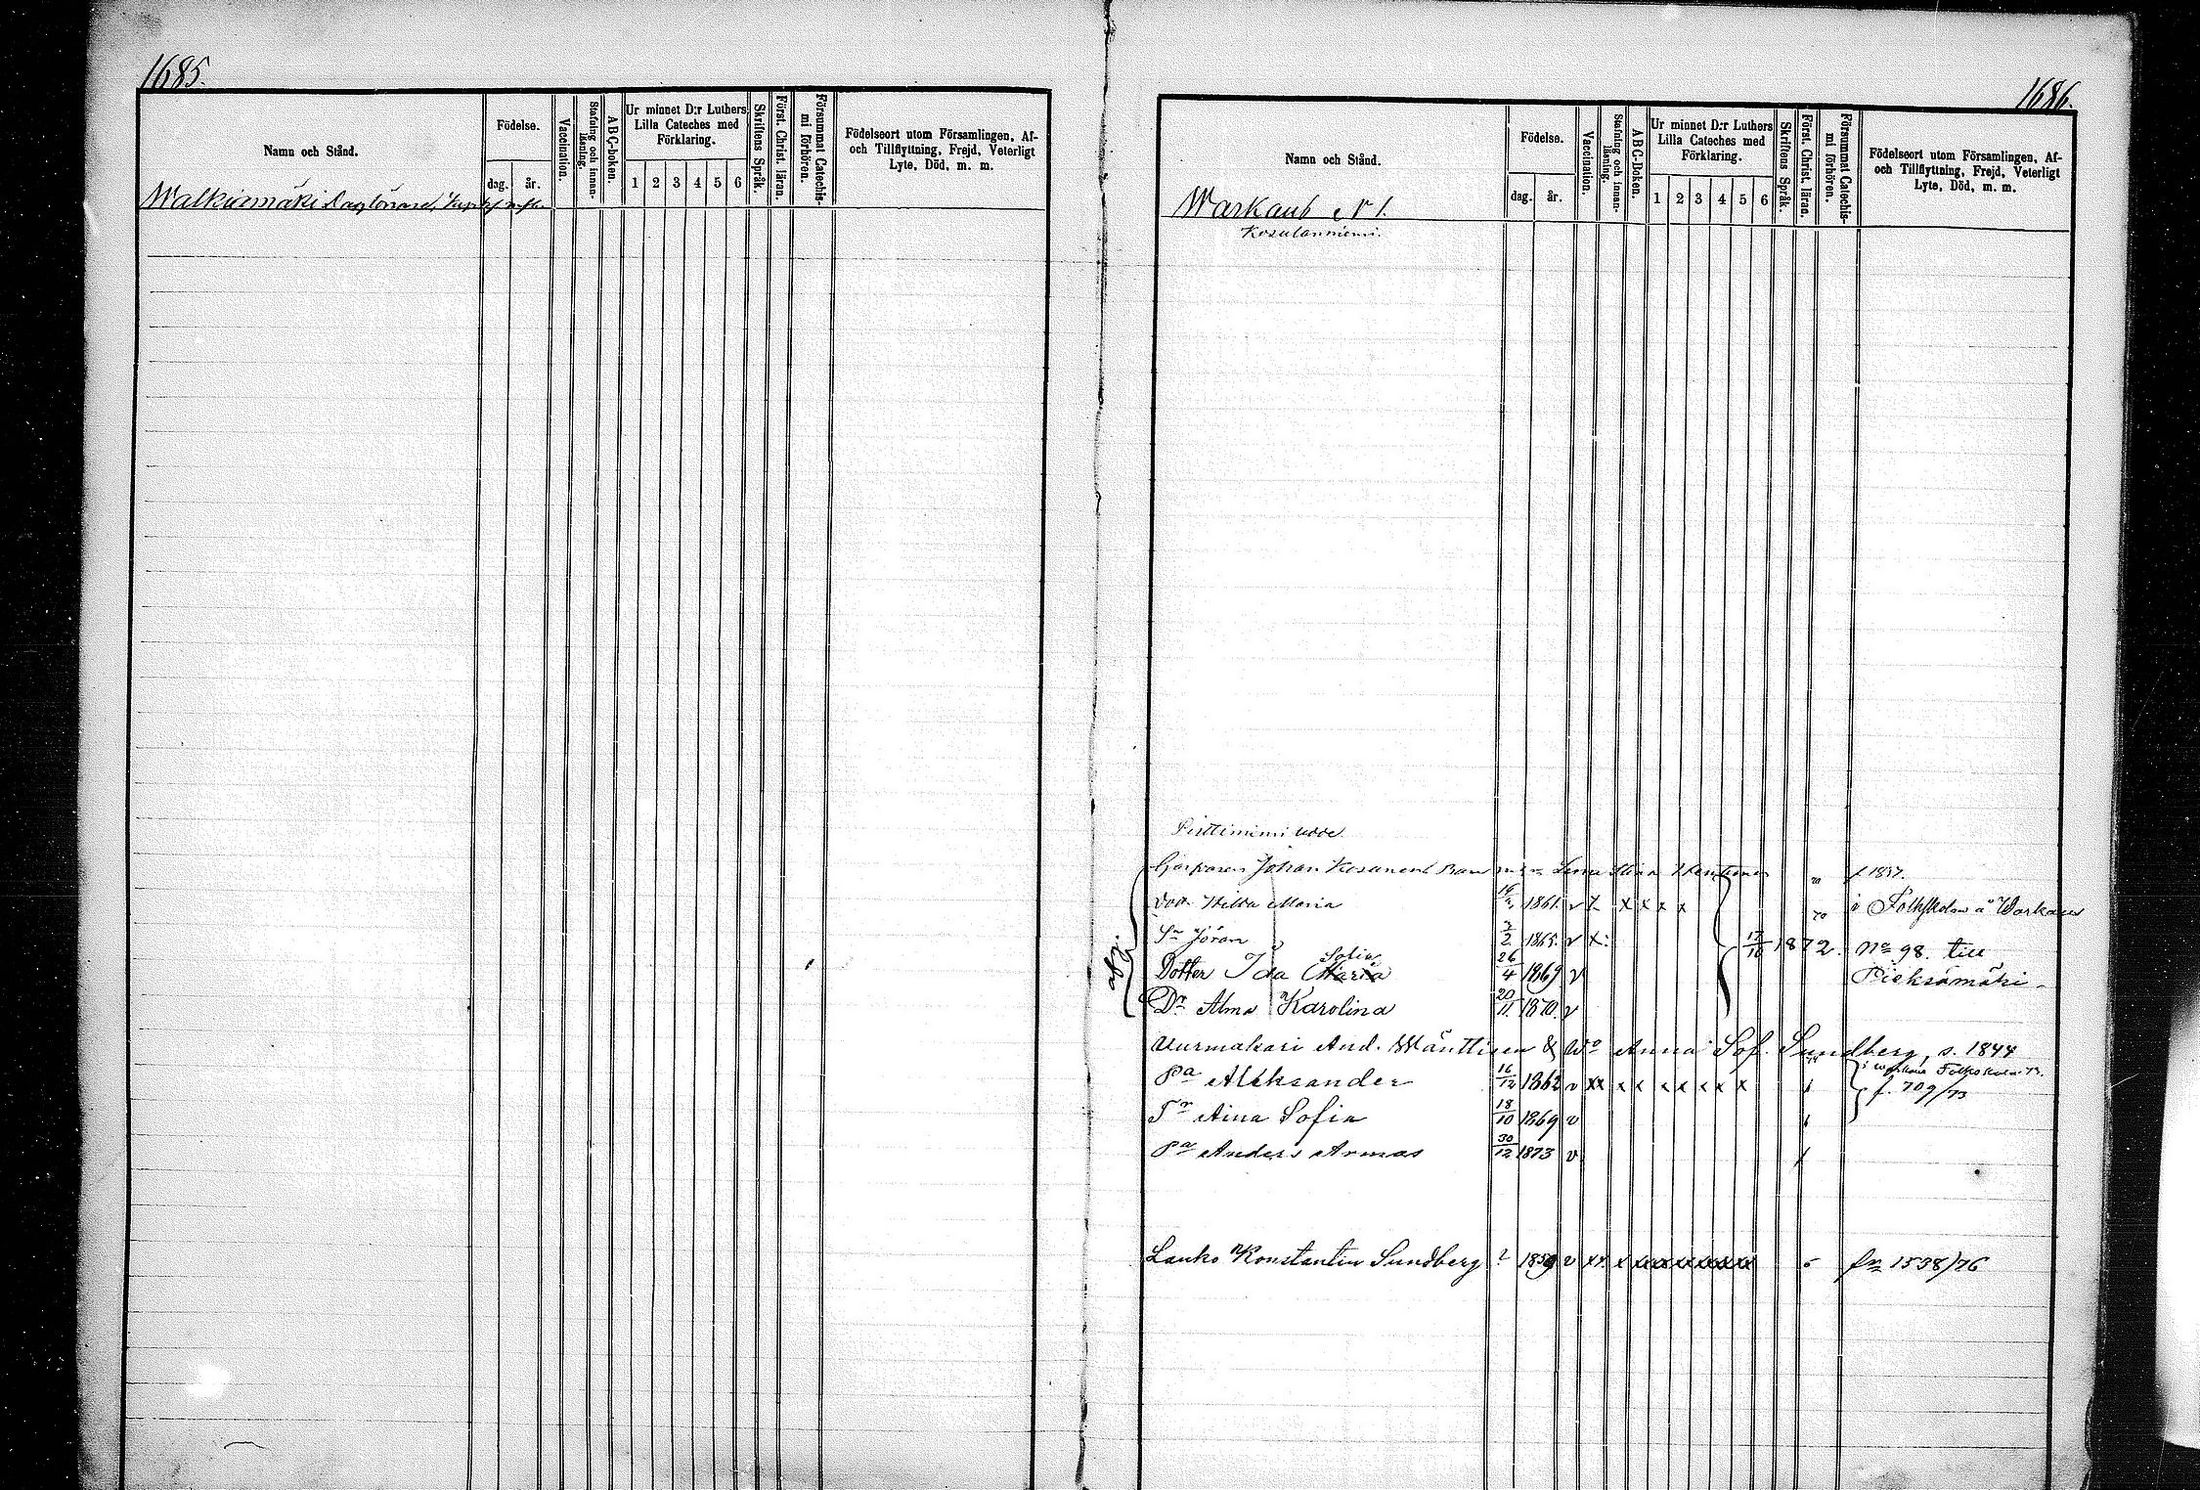 1685.
Namn och Stånd.
Födelse.
dag. år.
Vaccination.
Stafning och innanläsning.
A B C-boken.
Ur minnet D:r Luthers Lilla Cateches med Förklaring.
1 2 3 4 5 6
Skriftens Språk.
Först. Christ. läran.
Försummat Catechismi förhören.
Födelseort utom Församlingen, Af- och Tillflyttning, Frejd, Veterligt Lyte, Död, m. m.
Walkiamäki
1686.
Namn och Stånd.
Födelse.
dag. år.
Vaccination.
Stafning och innanläsning.
A B C-boken.
Ur minnet D:r Luthers Lilla Cateches med Förklaring.
1 2 3 4 5 6
Skriftens Språk.
Först. Christ. läran.
Försummat Catechismi förhören.
Födelseort utom Församlingen, Af- och Tillflyttning, Frejd, Veterligt Lyte, Död, m. m.
Warkaus N 1.
Kosulanniemi.
udde
Johan Kosunens Barn m. Lena Stina f. 1857.
Dott. Hilda Maria 1861. v x x x x i Folkskolan å Warkaus
Sn Jöran 2/2 1865. v x. 17/10 1872. No 98. till
Dotter Ida Maria Sofia 26/4 1869 v Pieksämäki
Dr Alma Karolina 20/11 1870. v
Uurmakari And. Mänttinen & Wo Anna Sof. Sundberg, s. 1844
Pa Aleksander 16/12 1862 v xx x x x x x x x f. 709/73
Tr Aina Sofia 18/10 1869 v
Pa Anders Armas 30/12 1873 v
Lanko Konstantin Sundberg ? 1859 v xx x fr 1538/76